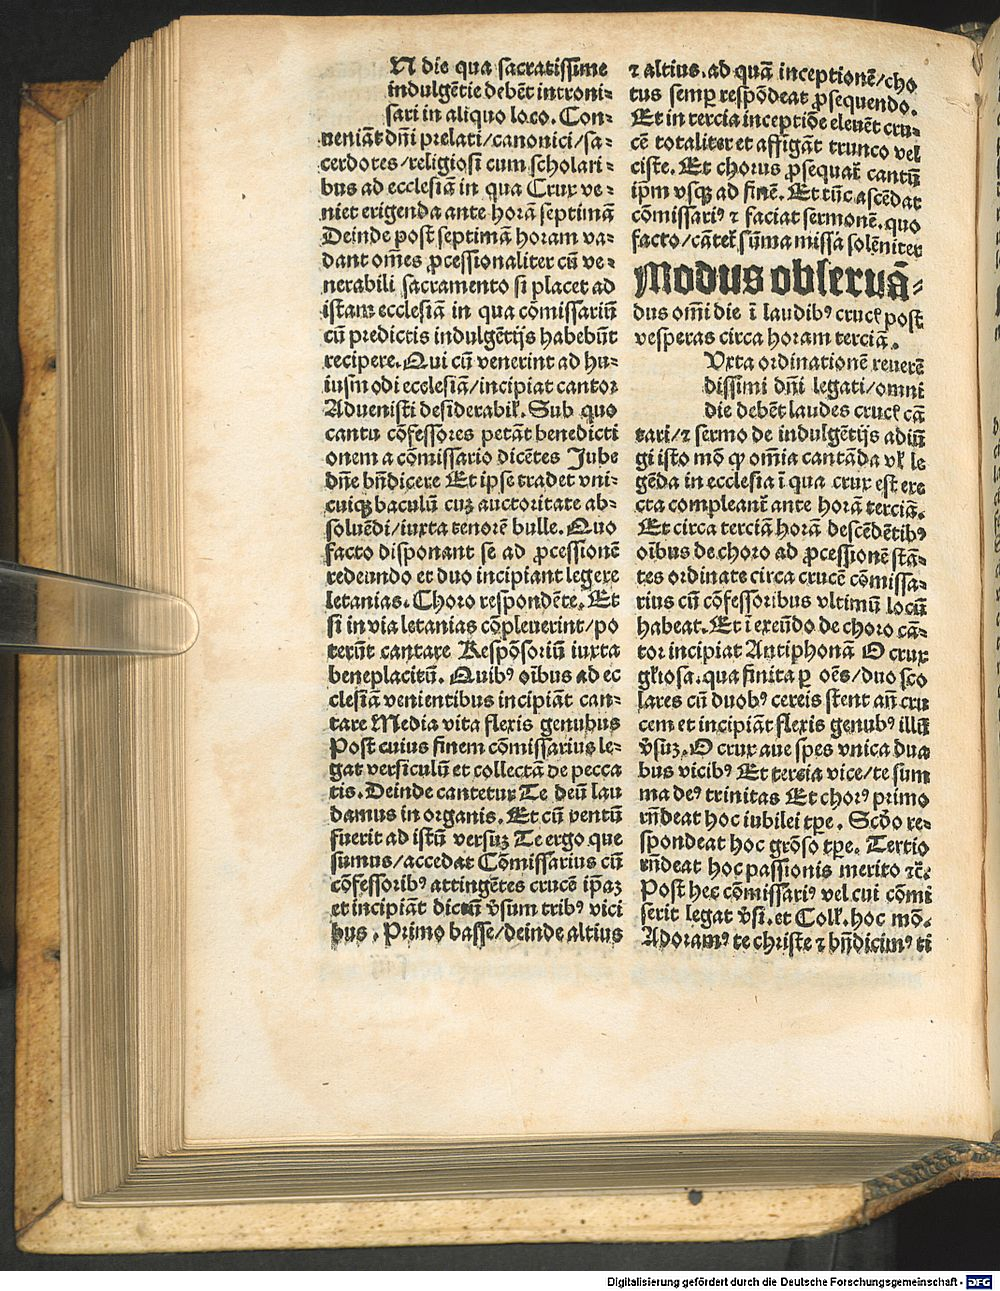 N die qua sacratissime
indulgētie debēt introni⸗
sari in aliquo loco. Con⸗
ueniāt dn̄i prelati/canonici/sa⸗
cerdotes/religiosi cum scholari⸗
bus ad ecclesiā in qua Crux ve⸗
niet erigenda ante horā septimā
Deinde post septimā horam va⸗
dant om̄es ꝓcessionaliter cū ve⸗
nerabili sacramento si placet ad
istam ecclesiā in qua cōmissariū
cū predictis indulgētijs habebūt
recipere. Qui cū venerint ad hu⸗
iusmodi ecclesiā/incipiat cantor
Aduenisti desiderabiƚ. Sub quo
cantu cōfessores petāt benedicti
onem a cōmissario dicētes Jube
dn̄e bn̄dicere Et ipse tradet vni⸗
cuiqꝫ baculū cuꝫ auctoritate ab⸗
soluēdi/iuxta tenorē bulle. Quo
facto disponant se ad ꝓcessionē
redeundo et duo incipiant legere
letanias. Choro respondēte. Et
si in via letanias cōpleuerint/po
terūt cantare Respōsoriū iuxta
beneplacitū. Quibꝰ oībus ad ec
clesiā venientibus incipiāt can⸗
tare Media vita flexis genubus
Post cuius finem cōmissarius le⸗
gat versiculū et collectā de pecca
tis. Deinde cantetur Te deū lau
damus in organis. Et cū ventū
fuerit ad istū versuꝫ Te ergo que
sumus/accedat Cōmissarius cū
cōfessoribꝰ attingētes crucē ip̄aꝫ
et incipiāt dictū v̄sum tribꝰ vici
bus. Primo basse/deinde altius
⁊ altius. ad quā inceptionē/cho
tus semꝑ respōdeat ꝓsequendo.
Et in tercia inceptiōe eleuēt cru⸗
cē totaliter et affigāt trunco vel
ciste. Et chorus ꝓsequat᷑ cantū
ip̄m vsqꝫ ad finē. Et tūc ascēdat
cōmissariꝰ ⁊ faciat sermonē. quo
facto/cātet᷑ sūma missa solēniter
Modus obseruā⸗
dus om̄i die ī laudibꝰ crucꝭ post
vesperas circa horam terciā.
Vxta ordinationē reuerē
dissimi dn̄i legati/omni
die debēt laudes crucꝭ cā
tari/⁊ sermo de indulgētijs adiū
gi isto mō ꝙ om̄ia cantāda vƚ le
gēda in ecclesia ī qua crux est ere
cta compleant᷑ ante horā terciā.
Et circa terciā horā descēdētibꝰ
oībus de choro ad ꝓcessionē stā⸗
tes ordinate circa crucē cōmissa⸗
rius cū cōfessoribus vltimū locū
habeat. Et ī exeūdo de choro cā⸗
tor incipiat Antiphonā O crux
gƚiosa. qua finita ꝑ oēs/duo sco
lares cū duobꝰ cereis stent an̄ cru
cem et incipiāt flexis genubꝰ illū
v̄suꝫ. O crux aue spes vnica dua
bus vicibꝰ Et tercia vice/te sum
ma deꝰ trinitas Et chorꝰ primo
rn̄deat hoc iubilei tꝑe. Scd̄o re⸗
spondeat hoc grōso tꝑe. Tertio
rn̄deat hoc passionis merito ⁊c̄.
Post hec cōmissariꝰ vel cui cōmi
serit legat v̄si. et Coll. hoc mō.
Adoramꝰ te christe ⁊ bn̄dicimꝰ ti
Digitalisierung gefördert durch die Deutsche Forschungsgemeinschaft - DFG